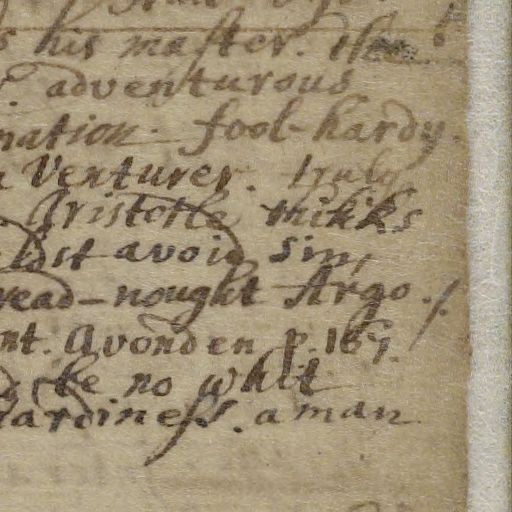 his master. The
adventurous
nation. fool-hardy.
Venturer. truly
Aristotle thinks
avoid Sin,
read-nought Argo./.
nt. Avonden p. 167.
be no whit
ardiness. a man